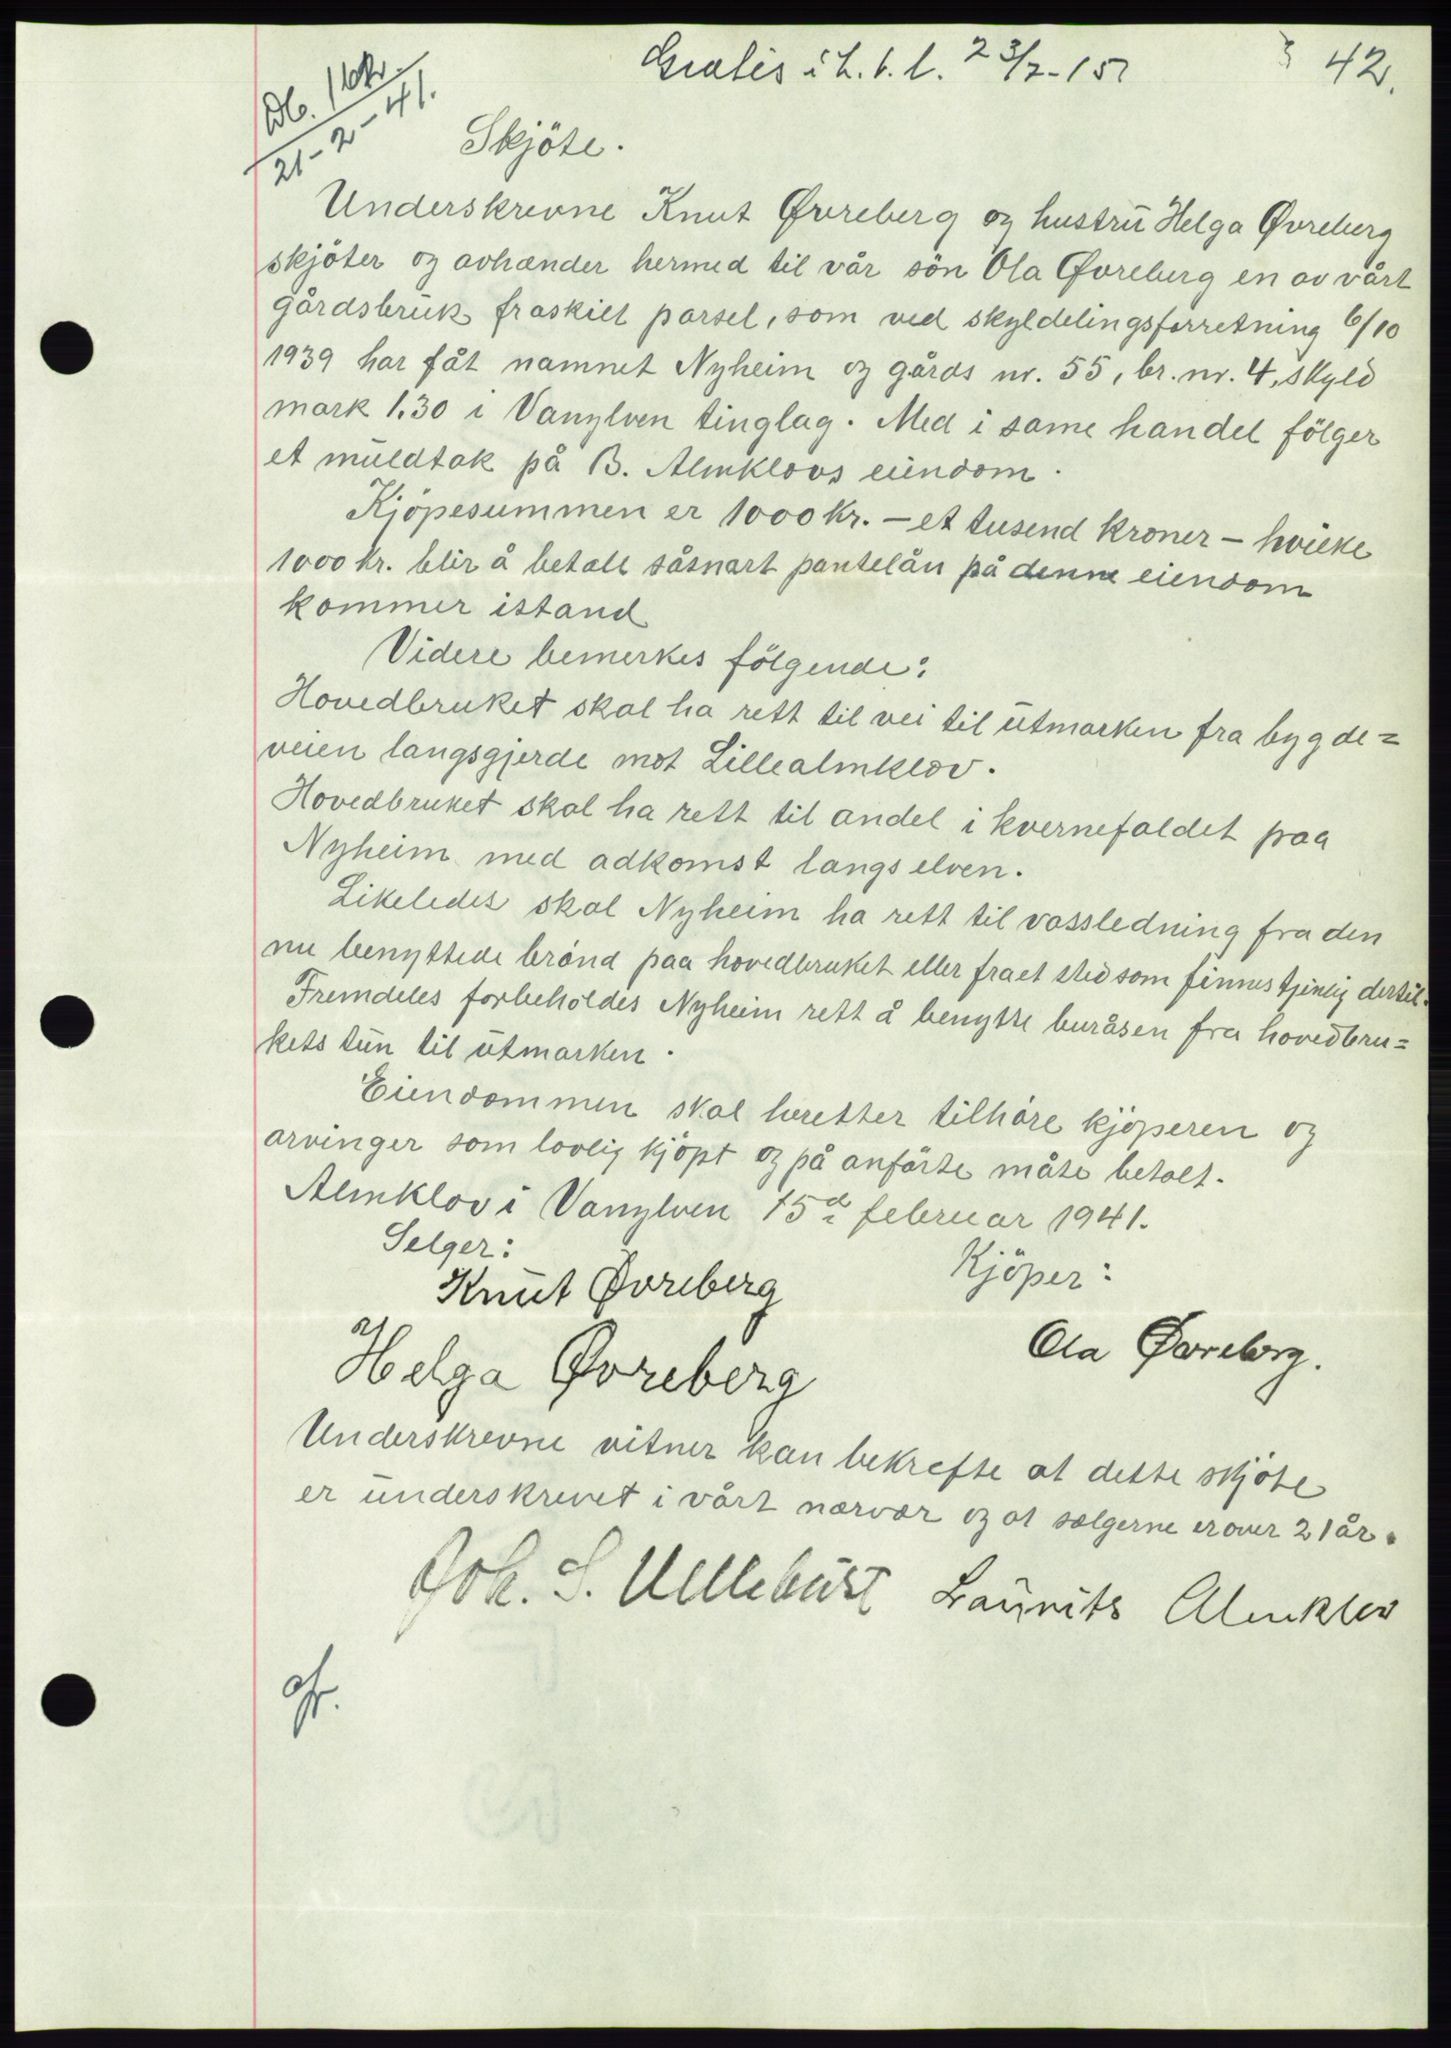 Gratis i h. t. l. 23/7-15
42.
Db. 116.
21-2-41.
Skjöte.
Underskrevne Knut Øvreberg og hustru Helga Øvreberg
skjöter og avhænder hermed til vår sön Ola Øvreberg en av vårt
gårdsbruk fraskilt parsel, som ved skyldelingsforretning 6/10
1939 har fåt namnet Nyheim og gårds nr. 55, br. nr. 4, skyld
mark 1.30 i Vanylven tinglag. Med i same handel fölger
et muldtak på B. Almklovs eiendom.
Kjöpesummen er 1000 kr. - et tusend kroner - hvilke
1000 kr. blir å betale såsnart pantelån på denne eiendom
kommer istand
Videre bemerkes fölgende:
Hovedbruket skal ha rett til vei til utmarken fra bygde=
veien langsgjerde mot Lillealmklov.
Hovedbruket skal ha rett til andel i kvernefaldet paa
Nyheim med adkomst langs elven.
Likeledes skal Nyheim ha rett til vassledning fra den
nu benyttede brönd paa hovedbruket eller fra et sted som finnes tjenlig dertil.
Fremdeles forbeholdes Nyheim rett å benytte buråsen fra hovedbru=
kets tun til utmarken.
Eiendommen skal heretter tilhöre kjöperen og
arvinger som lovlig kjöpt og på anförte måte betalt.
Almklov i Vanylven 15d februar 1941.
Selger:
Kjöper:
Knut Øvreberg
Ola Øvreberg.
Helga Øvreberg
Underskrevne vitner kan bekrefte at dette skjöte
er underskrevet i vårt nærvær og at sælgerne er over 21 år.
Joh. S. Ullehust Lauritz Almklov